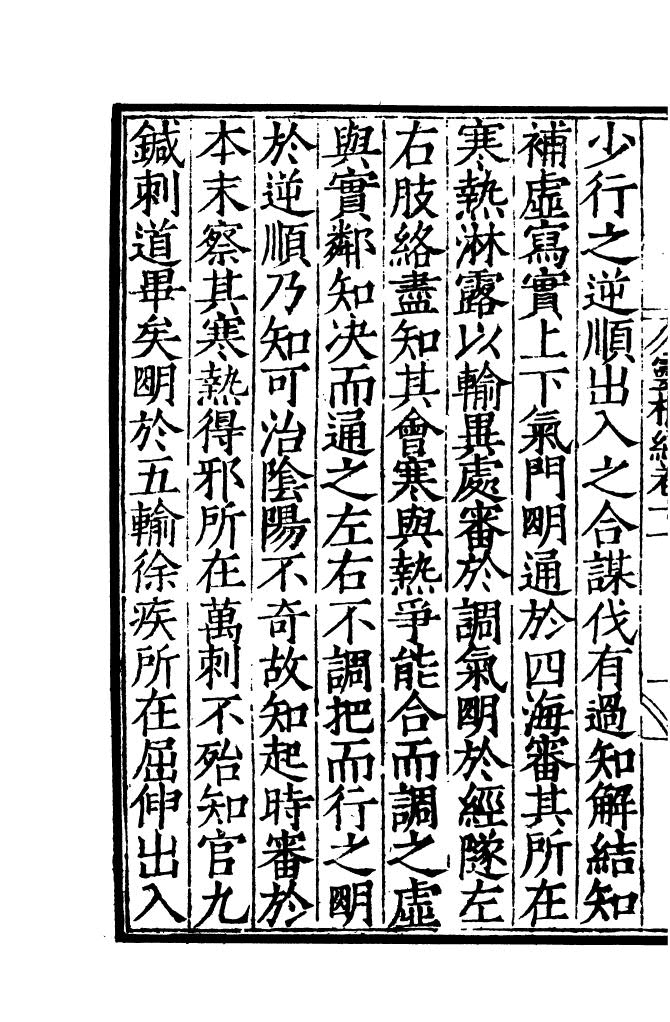 少行之逆順出入之合謀伐有過知解結知
補虛寫實上下氣門明通於四海審其所在
寒熱淋露以輸異處審於調氣明於經隧左
右肢絡盡知其會寒與熱爭能合而調之虛
與實鄰知决而通之左右不調把而行之明
於逆順乃知可治陰陽不奇故知起時審於
本末察其寒熱得邪所在萬刺不殆知官九
鍼刺道畢矣明於五輸徐疾所在屈伸出入